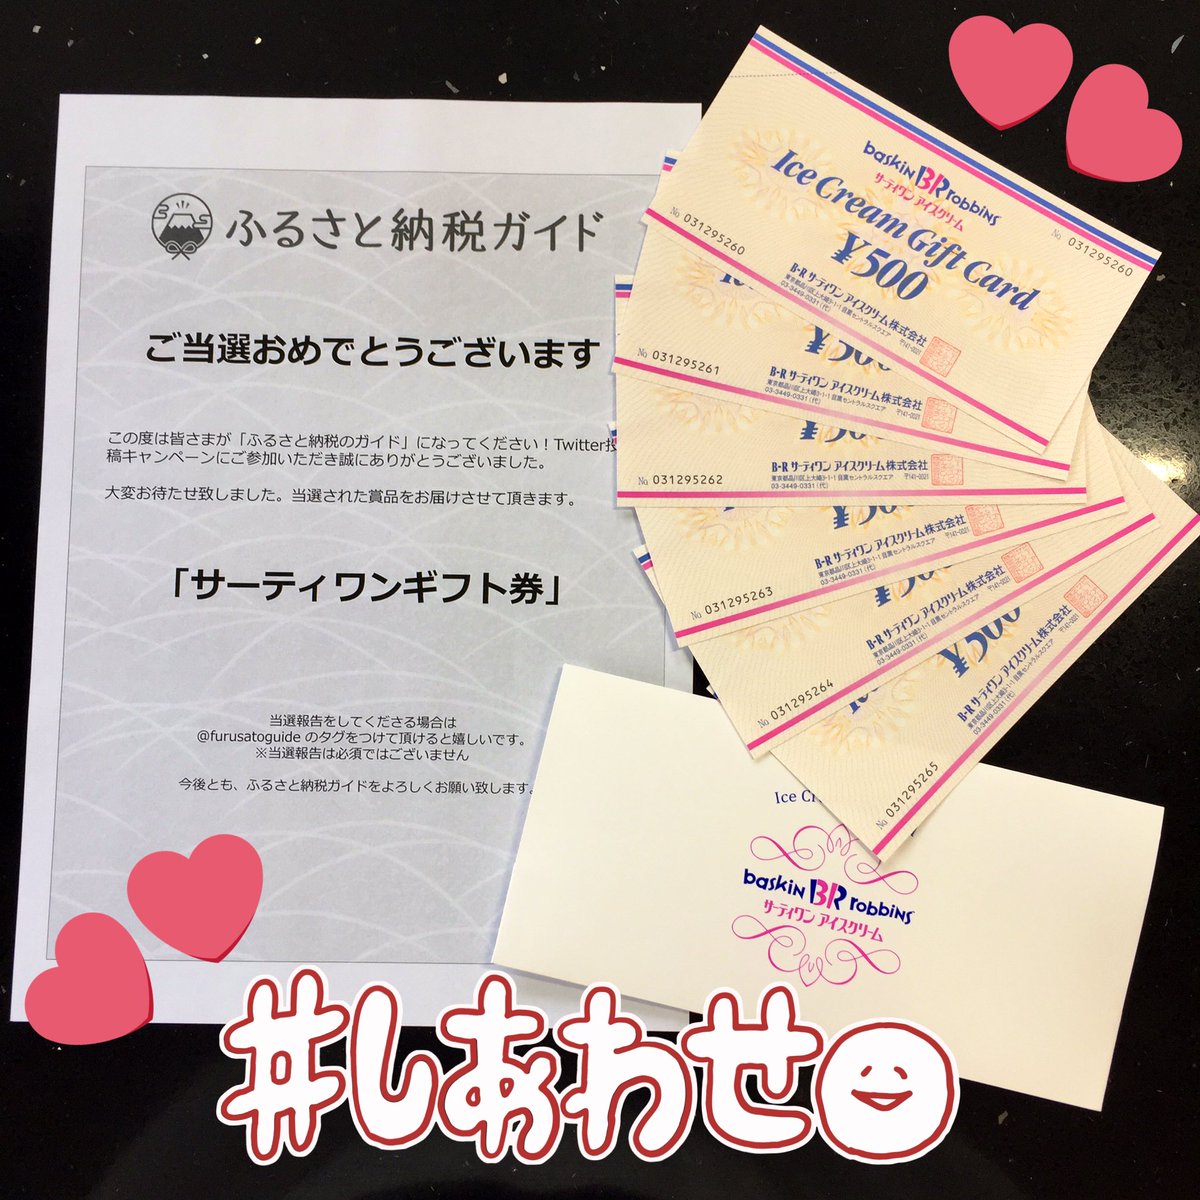 ふるさと納税ガイド
ご当選おめでとうございます
この度は皆さまが「ふるさと納税のガイド」になってください！Twitter投
稿キャンペーンにご参加いただき誠にありがとうございました。
大変お待たせ致しました。当選された賞品をお届けさせて頂きます。
「サーティワンギフト券」
当選報告をしてくださる場合は
@furusatoguide のタグをつけて頂けると嬉しいです。
※当選報告は必須ではございません
今後とも、ふるさと納税ガイドをよろしくお願い致します。
baskin BR robbins
サーティワン アイスクリーム
Ice Cream Gift Card
¥500
No 031295260
No 031295260
B-R サーティワン アイスクリーム株式会社
東京都品川区上大崎3-1-1 目黒セントラルスクエア 〒141-0021
03-3449-0331(代)
¥500
No 031295261
B-R サーティワン アイスクリーム株式会社
東京都品川区上大崎3-1-1 目黒セントラルスクエア 〒141-0021
03-3449-0331(代)
¥500
No 031295262
B-R サーティワン アイスクリーム株式会社
東京都品川区上大崎3-1-1 目黒セントラルスクエア 〒141-0021
03-3449-0331(代)
¥500
No 031295263
B-R サーティワン アイスクリーム株式会社
東京都品川区上大崎3-1-1 目黒セントラルスクエア 〒141-0021
03-3449-0331(代)
¥500
No 031295264
B-R サーティワン アイスクリーム株式会社
東京都品川区上大崎3-1-1 目黒セントラルスクエア 〒141-0021
03-3449-0331(代)
¥500
No 031295265
B-R サーティワン アイスクリーム株式会社
東京都品川区上大崎3-1-1 目黒セントラルスクエア 〒141-0021
03-3449-0331(代)
Ice Cr
baskin BR robbins
サーティワン アイスクリーム
#しあわせ